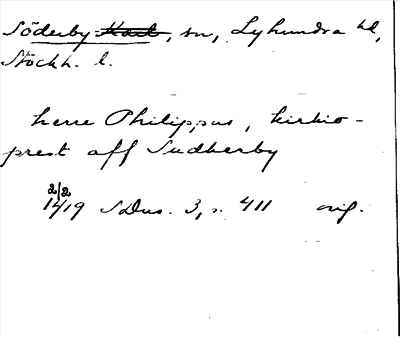 Söderby-Karl, sn, Lyhundra hd,
Stockh. l.
herre Philippus, kirkio-
prest aff Sudherby
2/2
1419 SDns. 3, s. 411 orig.